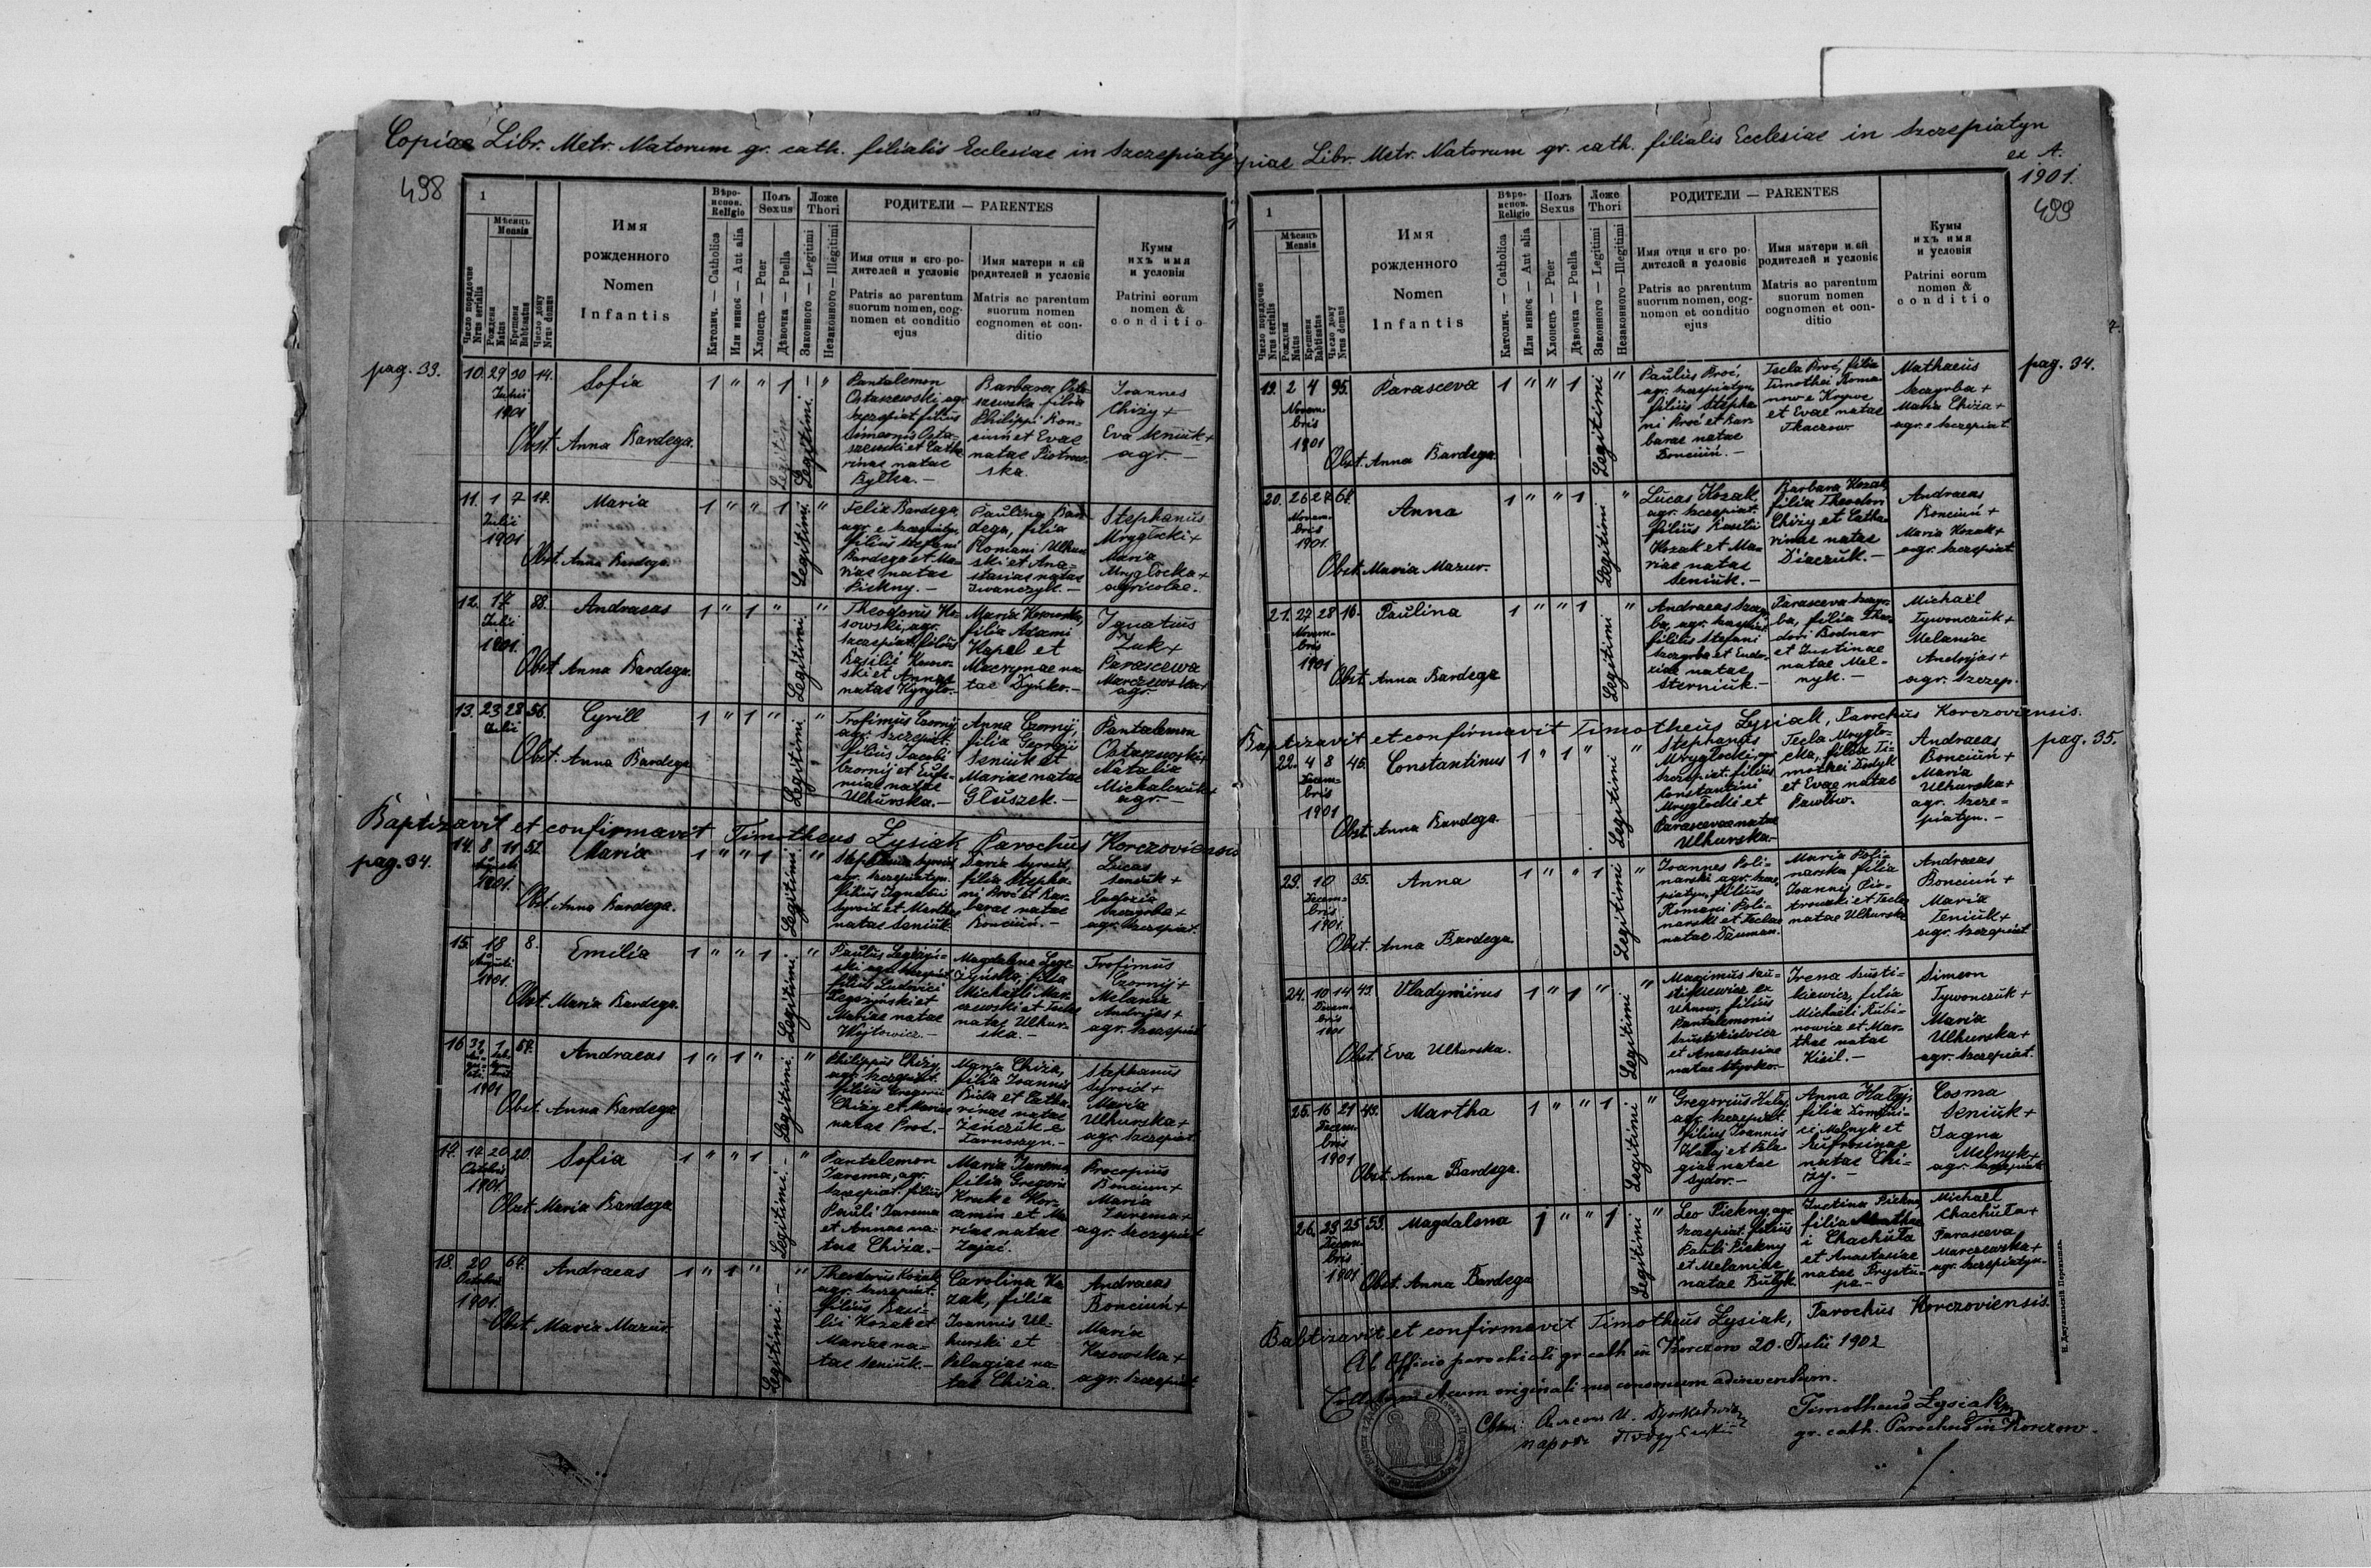 Copiae Libr. Metr. Natorum gr. cath. filialis Ecclesiae in Szczepiaty
498
1
Мѣсяцъ
Mensis
Число порядочне
Nrus serialis
Рожденя
Natus
Крещеня
Babtisatus
Число дому
Nrus domus
Имя
рожденного
Nomen
Infantis
Вѣро-
испов.
Religio
Католич. — Catholica
Или инноє — Aut alia
Полъ
Sexus
Хлопець — Puer
Дѣвочка — Puella
Ложе
Thori
Законного — Legitimi
Незаконного — Illegitimi
РОДИТЕЛИ — PARENTES
Имя отця и єго ро-
дителей и условіє
Patris ac parentum
suorum nomen, cog-
nomen et conditio
ejus
Имя матери и єй
родителей и условіє
Matris ac parentum
suorum nomen
cognomen et con-
ditio
Кумы
ихъ имя
и условія
Patrini eorum
nomen &
conditio
pag. 33.
10. 29 30 14. Sofia 1 " " 1 "
Julii
1901
Obst. Anna Bardega.
Legitimi.
Pantalemon
Ostaszewski agr.
Szczepiat. filius
Simeonis Osta-
szewski et Catha
rinae natae
Bylka. —
Barbara Osta
szewska filia
Philippi Bon-
ciuń et Evae
natae Piotrow-
ska.
Ioannes
Chiży +
Eva Seniuk +
agr. —
11. 1 7 17. Maria 1 " " 1 "
Julii
1901
Obst. Anna Bardega.
Legitimi.
Felix Bardega,
agr. e Szczepiatyn,
filius Stefani
Bardega et Ma-
riae natae
Piekny. —
Paulina Bar
dega, filia
Romani Ulhur
ski et Ana-
stasiae natae
Iwanczyk. —
Stephanus
Mryglocki +
Maria
Mryglocka +
agricolae.
12. 17 88. Andraeas 1 " 1 " "
Julii
1901.
Obst. Anna Bardega.
Legitimi
Theodorus Ko-
sowski, agr.
Szczepiat. filius
Basilii Kosow-
ski et Annae
natae Kyrylo. —
Maria Kosowska,
filia Adami
Kapel et
Macrynae na-
tae Dyńko. —
Ignatius
Żuk +
Parascewa
Marczewska +
agr.
13. 23 28 56. Cyrill 1 " 1 " "
Julii
Obst. Anna Bardega
Legitimi
Trofimus Czornij
agr. Szczepiat.
filius Jacobi
Czornij et Eufe-
miae natae
Ulhurska. —
Anna Czornij,
filia Georgii
Seniuk et
Mariae natae
Głuszek. —
Pantalemon
Ostaszewski +
Natalia
Michalczuk +
agr. —
Baptizavit et confirmavit Timotheus Łysiak Parochus Korczoviensis
pag. 34.
14. 8 11 52. Maria 1 " " 1 "
1901.
Obst. Anna Bardega.
Legitimi
Stephanus Syroid
agr. Szczepiatyn.
filius Ignatii
Syroid et Marthae
natae Seniuk
Daria Syroid,
filia Stepha-
ni Proć et Bar-
barae natae
Bonciuń. —
Lucas
Seniuk +
Eudoxia
Szczyrba +
agr. Szczepiat.
15. 18 8. Emilia 1 " " 1 "
Augusti
1901.
Obst. Maria Bardega.
Legitimi
Paulus Legożyń-
ski agr. Szczepiat.
filius Ludovici
Legożyński et
Mariae natae
Wojtowicz. —
Magdalena Lego-
żyńska, filia
Michaëli Mar-
czewski et Teclae
natae Ulhur-
ska. —
Trofimus
Czornij +
Melania
Andrijas +
agr. Szczepiat.
16 31 1 67. Andraeas 1 " 1 " "
1901
Obst. Anna Bardega
Legitimi.
Philippus Chiży,
agr. Szczepiat.
filius Gregorii
Chiży et Mariae
natae Proć. —
Maria Chiża,
filia Ioannis
Bida et Catha-
rinae natae
Zińczuk e
Tarnoszyn. —
Stephanus
Syroid +
Maria
Ulhurska +
agr. Szczepiat.
17. 14 20 20. Sofia 1 " " 1 "
Octobris
1901.
Obst. Maria Bardega
Legitimi. —
Pantalemon
Jarema, agr.
Szczepiat. filius
Pauli Jarema
et Annae na-
tae Chiża. —
Maria Jarema,
filia Gregorii
Kruk e Kor-
amin et Ma
riae natae
Zając.
Procopius
Bonciun +
Maria
Jarema +
agr. Szczepiat
18. 20 64. Andraeas 1 " 1 " "
Octobris
1901.
Obst. Maria Mazur.
Legitimi. —
Theodorus Kozak,
agr. Szczepiat.
filius Basi-
lii Kozak et
Mariae na-
tae Seniuk. —
Carolina Ko
zak, filia
Ioannis Ul-
hurski et
Pelagiae na-
tae Chiża.
Andraeas
Bonciuń +
Maria
Kosowska +
agr. Szczepiat.
piae Libr. Metr. Natorum gr. cath. filialis Ecclesiae in Szczepiatyn
ex A.
1901.
499
1
Мѣсяцъ
Mensis
Число порядочне
Nrus serialis
Рожденя
Natus
Крещеня
Babtisatus
Число дому
Nrus domus
Имя
рожденного
Nomen
Infantis
Вѣро-
испов.
Religio
Католич. — Catholica
Или инноє — Aut alia
Полъ
Sexus
Хлопець — Puer
Дѣвочка — Puella
Ложе
Thori
Законного — Legitimi
Незаконного — Illegitimi
РОДИТЕЛИ — PARENTES
Имя отця и єго ро-
дителей и условіє
Patris ac parentum
suorum nomen, cog-
nomen et conditio
ejus
Имя матери и єй
родителей и условіє
Matris ac parentum
suorum nomen
cognomen et con-
ditio
Кумы
ихъ имя
и условія
Patrini eorum
nomen &
conditio
pag. 34.
19. 2 4 95. Parasceva 1 " " 1 "
Novem-
bris
1901
Obst. Anna Bardega
Legitimi
Paulus Proć,
agr. Szczepiatyn,
filius Stepha
ni Proć et Bar-
barae natae
Bonciuń. —
Tecla Proć, filia
Timothei Roma
now e Krywe
et Evae natae
Tkaczow.
Mathaeus
Szczyrba +
Maria Chiża +
agr. e Szczepiat.
20. 26 27 64. Anna 1 " " 1 "
Novem-
bris
1901.
Obst. Maria Mazur.
Legitimi
Lucas Kozak,
agr. Szczepiat.
filius Basilii
Kozak et Ma-
riae natae
Seniuk. —
Barbara Kozak,
filia Theodori
Chiży et Catha-
rinae natae
Diaczuk. —
Andraeas
Bonciuń +
Maria Kozak +
agr. Szczepiat
21. 27 28 16. Paulina 1 " " 1 "
Novem-
bris
1901
Obst. Anna Bardega
Legitimi
Andraeas Szczyr-
ba, agr. Szczepiat.
filius Stefani
Szczyrba et Eudo-
xiae natae
Sterniuk. —
Parasceva Szczyr-
ba, filia Theo-
dori Bodnar
et Justinae
natae Mel-
nyk. —
Michaël
Tywonczuk +
Melania
Andrijas +
agr. Szczep.
Baptizavit et confirmavit Timotheus Łysiak, Parochus Korczoviensis.
pag. 35.
22. 4 8 45. Constantinus 1 " 1 " "
Decem-
bris
1901
Obst. Anna Bardega.
Legitimi
Stephanus
Mryglocki agr.
Szczepiat. filius
Constantini
Mryglocki et
Parascevae natae
Ulhurska. —
Tecla Mryglo-
cka, filia Ti-
mothei Dedyk
et Evae natae
Pawlów.
Andraeas
Bonciuń +
Maria
Ulhurska +
agr. Szcze-
piatyn. —
23. 10 35. Anna 1 " " 1 "
Decem-
bris
1901.
Obst. Anna Bardega.
Legitimi
Ioannes Poli-
narski agr. Szcze-
piatyn, filius
Romani Poli-
narski et Teclae
natae Dauman.
Maria Poli-
narska filia
Ioannis Pio-
trowski et Teclae
natae Ulhurska
Andraeas
Bonciuń +
Maria
Seniuk +
agr. Szczepiat
24. 10 14 43. Vladymirus 1 " 1 " "
Decem-
bris
1901
Obst. Eva Ulhurska.
Legitimi
Maximus Szu-
stikiewicz ex
Uhnow, filius
Pantalemonis
Szustikiewicz
et Anastasiae
natae Styrko. —
Irena Szusti-
kiewicz, filia
Michaëli Rubi-
nowicz et Mar-
thae natae
Kisil. —
Simeon
Tywonczuk +
Maria
Ulhurska +
agr. Szczepiat.
25. 16 21 49. Martha 1 " " 1 "
Decem-
bris
1901
Obst. Anna Bardega.
Legitimi
Gregorius Hałaj
agr. Szczepiat.
filius Ioannis
Hałaj et Pela
giae natae
Sydor. —
Anna Hałaj,
filia Domini-
ci Melnyk et
Eufrosinae
natae Chi-
ży.
Cosma
Seniuk +
Jagna
Melnyk +
agr. Szczepiat.
26. 23 25 53. Magdalena 1 " " 1 "
Decem-
bris
1901
Obst. Anna Bardega
Legitimi
Leo Piekny, agr.
Szczepiat. filius
Pauli Piekny
et Melaniae
natae Bułyk.
Justina Piekna,
filia Matthae
i Chachuła
et Anastasiae
natae Prystu-
pa. —
Michaël
Chachuła +
Parasceva
Marczewska +
agr. Szczepiatyn. —
Babtizavit et confirmavit Timotheus Łysiak, Parochus Korczoviensis.
Ab Officio parochiali gr. cath. in Korczow 20. Julii 1902
Collatum cum originali suo consonum adinventum.
Timotheus Łysiak
gr. cath. Parochus in Korczow.